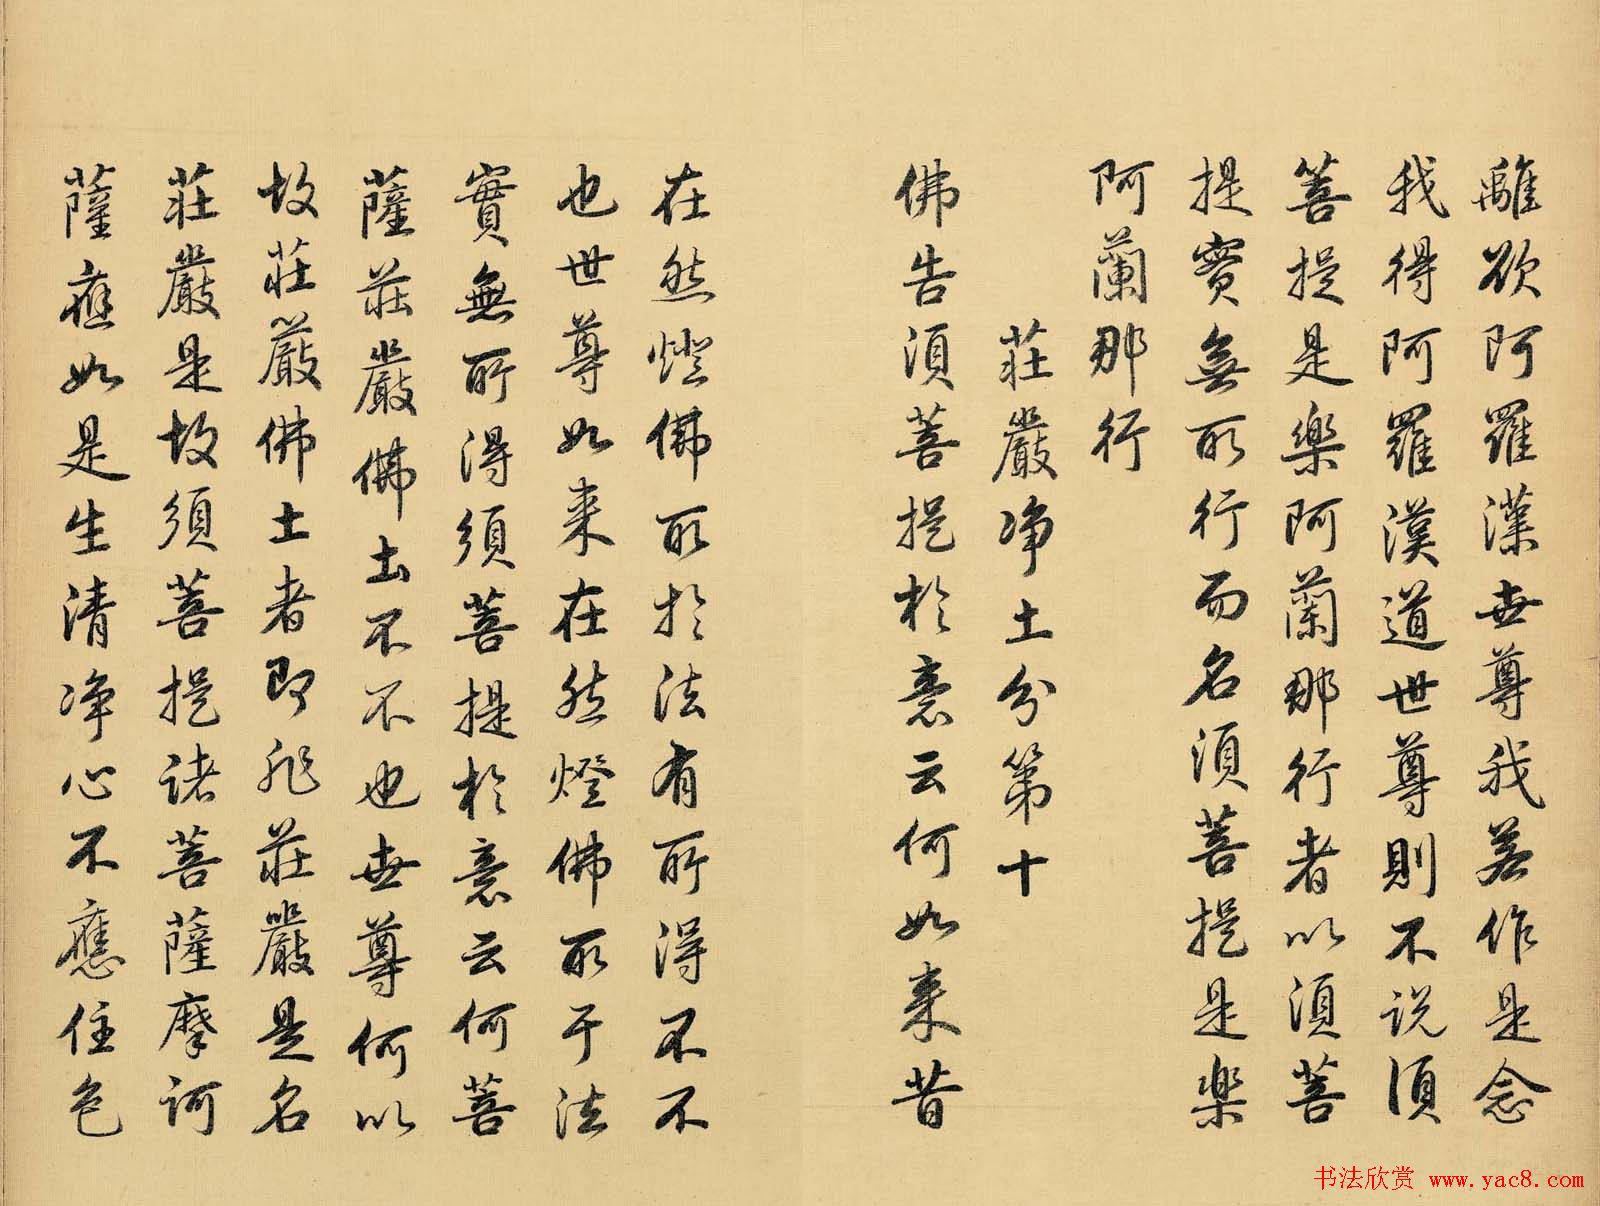 離欲阿羅漢世尊我若作是念
我得阿羅漢道世尊則不說須
菩提是樂阿蘭那行者以須菩
提實無所行而名須菩提是樂
阿蘭那行
莊嚴净土分第十
佛告須菩提於意云何如来昔
在然燈佛所於法有所得不不
也世尊如来在然燈佛所于法
實無所得須菩提於意云何菩
薩莊嚴佛土不不也世尊何以
故莊嚴佛土者即非莊嚴是名
莊嚴是故須菩提諸菩薩摩訶
薩應如是生清净心不應住色
书法欣赏 www.yac8.com